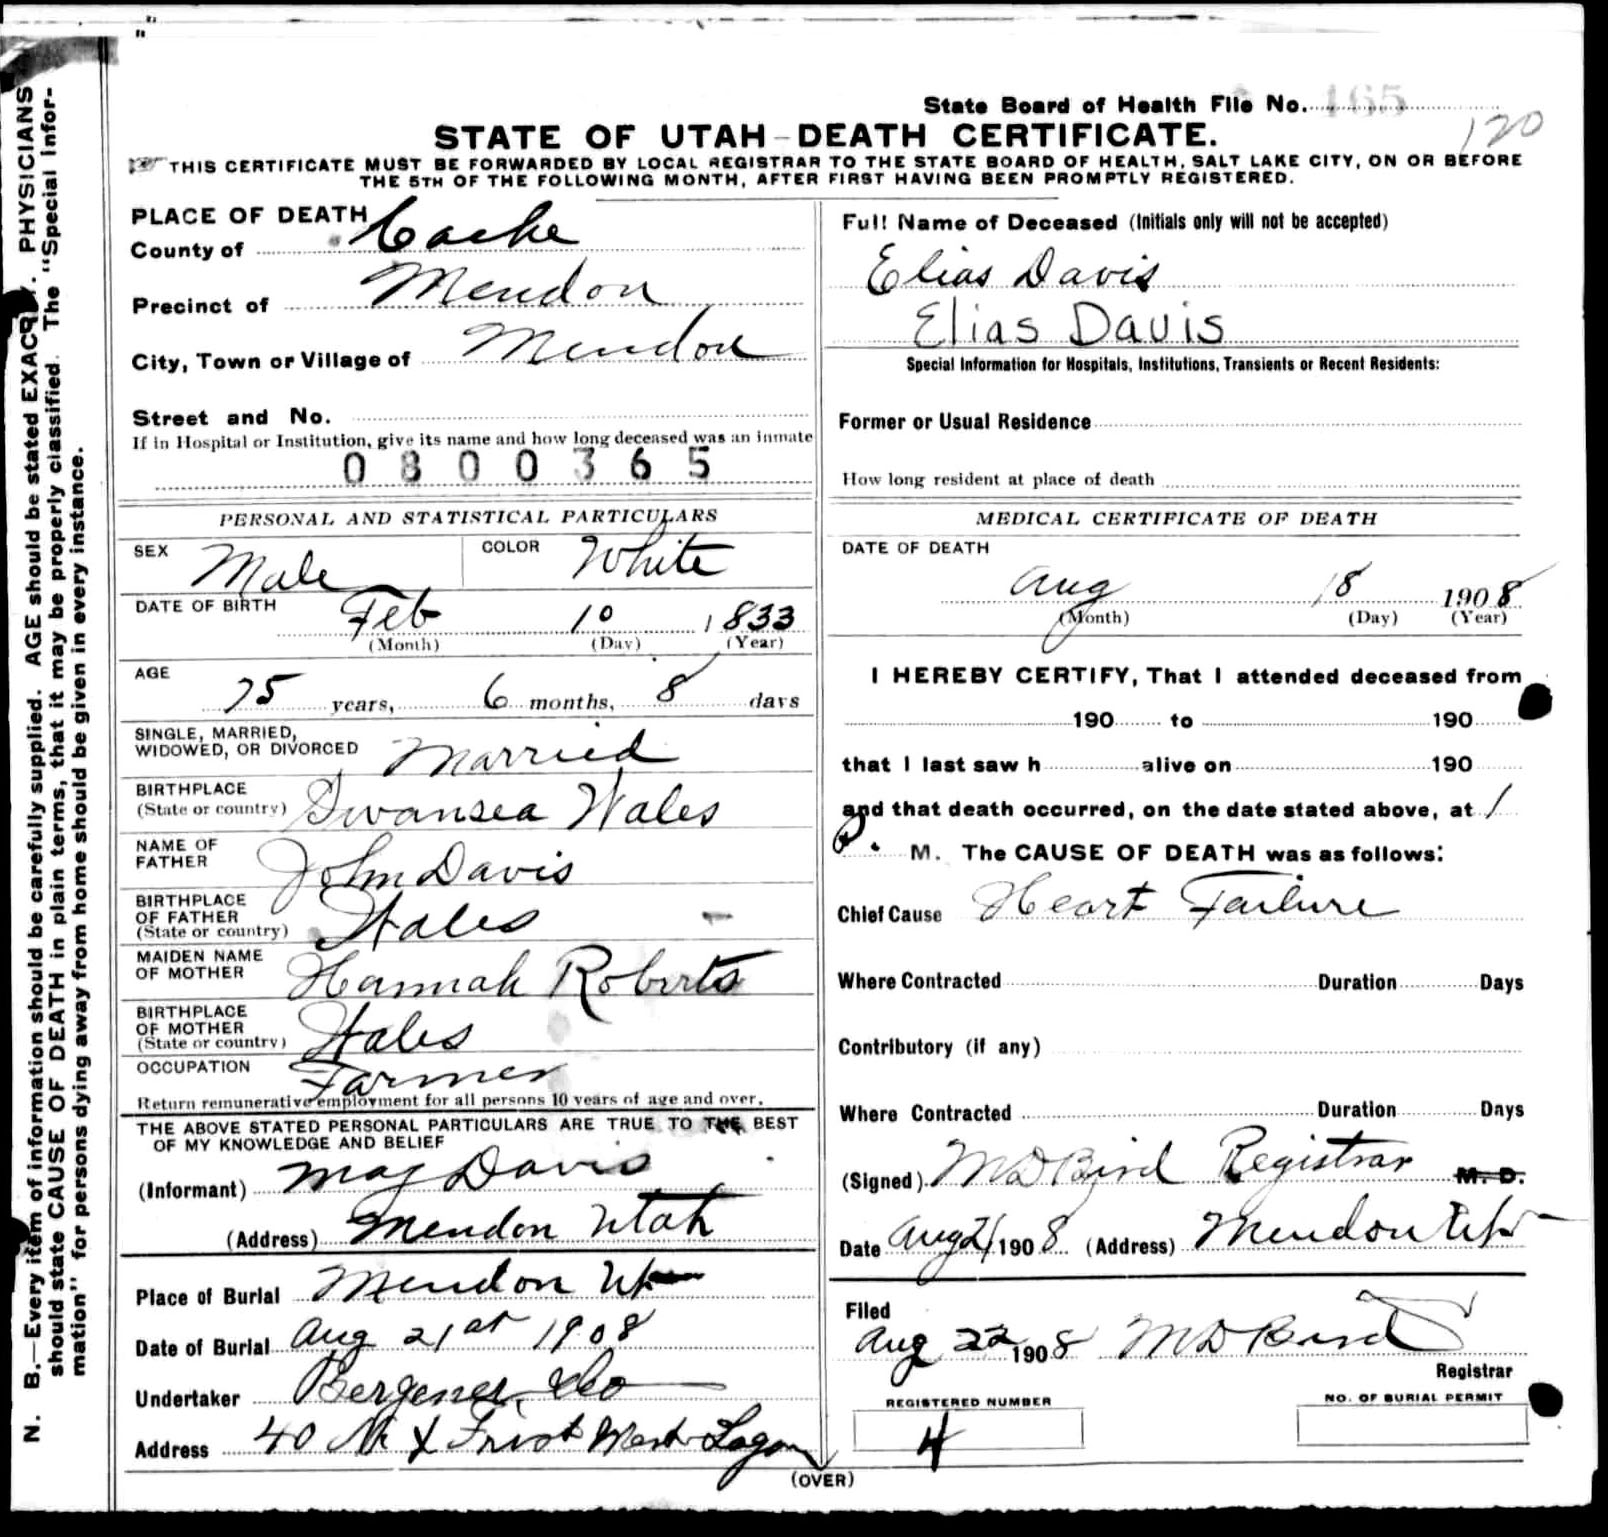 State Board of Health File No. 165
120
STATE OF UTAH-DEATH CERTIFICATE.
THIS CERTIFICATE MUST BE FORWARDED BY LOCAL REGISTRAR TO THE STATE BOARD OF HEALTH, SALT LAKE CITY, ON OR BEFORE
THE 5TH OF THE FOLLOWING MONTH, AFTER FIRST HAVING BEEN PROMPTLY REGISTERED.
N. B.—Every item of information should be carefully supplied. AGE should be stated EXACTLY. PHYSICIANS
should state CAUSE OF DEATH in plain terms, that it may be properly classified. The "Special Infor-
mation" for persons dying away from home should be given in every instance.
PLACE OF DEATH
County of Cache
Precinct of Mendon
City, Town or Village of Mendon
Street and No.
If in Hospital or Institution, give its name and how long deceased was an inmate
0800365
PERSONAL AND STATISTICAL PARTICULARS
SEX Male COLOR White
DATE OF BIRTH Feb 10 1833
(Month) (Day) (Year)
AGE 75 years, 6 months, 8 days
SINGLE, MARRIED,
WIDOWED, OR DIVORCED Married
BIRTHPLACE
(State or country) Swansea Wales
NAME OF
FATHER John Davis
BIRTHPLACE
OF FATHER
(State or country) Wales
MAIDEN NAME
OF MOTHER Hannah Roberts
BIRTHPLACE
OF MOTHER
(State or country) Wales
OCCUPATION Farmer
Return remunerative employment for all persons 10 years of age and over.
THE ABOVE STATED PERSONAL PARTICULARS ARE TRUE TO THE BEST
OF MY KNOWLEDGE AND BELIEF
(Informant) May Davis
(Address) Mendon Utah
Place of Burial Mendon Ut
Date of Burial Aug 21st 1908
Undertaker & Co
Address 40 N & First West Logan
(OVER)
Full Name of Deceased (Initials only will not be accepted)
Elias Davis
Elias Davis
Special Information for Hospitals, Institutions, Transients or Recent Residents:
Former or Usual Residence
How long resident at place of death
MEDICAL CERTIFICATE OF DEATH
DATE OF DEATH
Aug 18 1908
(Month) (Day) (Year)
I HEREBY CERTIFY, That I attended deceased from
190 to 190
that I last saw h alive on 190
and that death occurred, on the date stated above, at 1
P. M. The CAUSE OF DEATH was as follows:
Chief Cause Heart Failure
Where Contracted Duration Days
Contributory (if any)
Where Contracted Duration Days
(Signed) M D Bird Registrar M. D.
Date Aug 21 1908 (Address) Mendon Ut
Filed
Aug 22 1908 M D Bird
Registrar
REGISTERED NUMBER
4
NO. OF BURIAL PERMIT